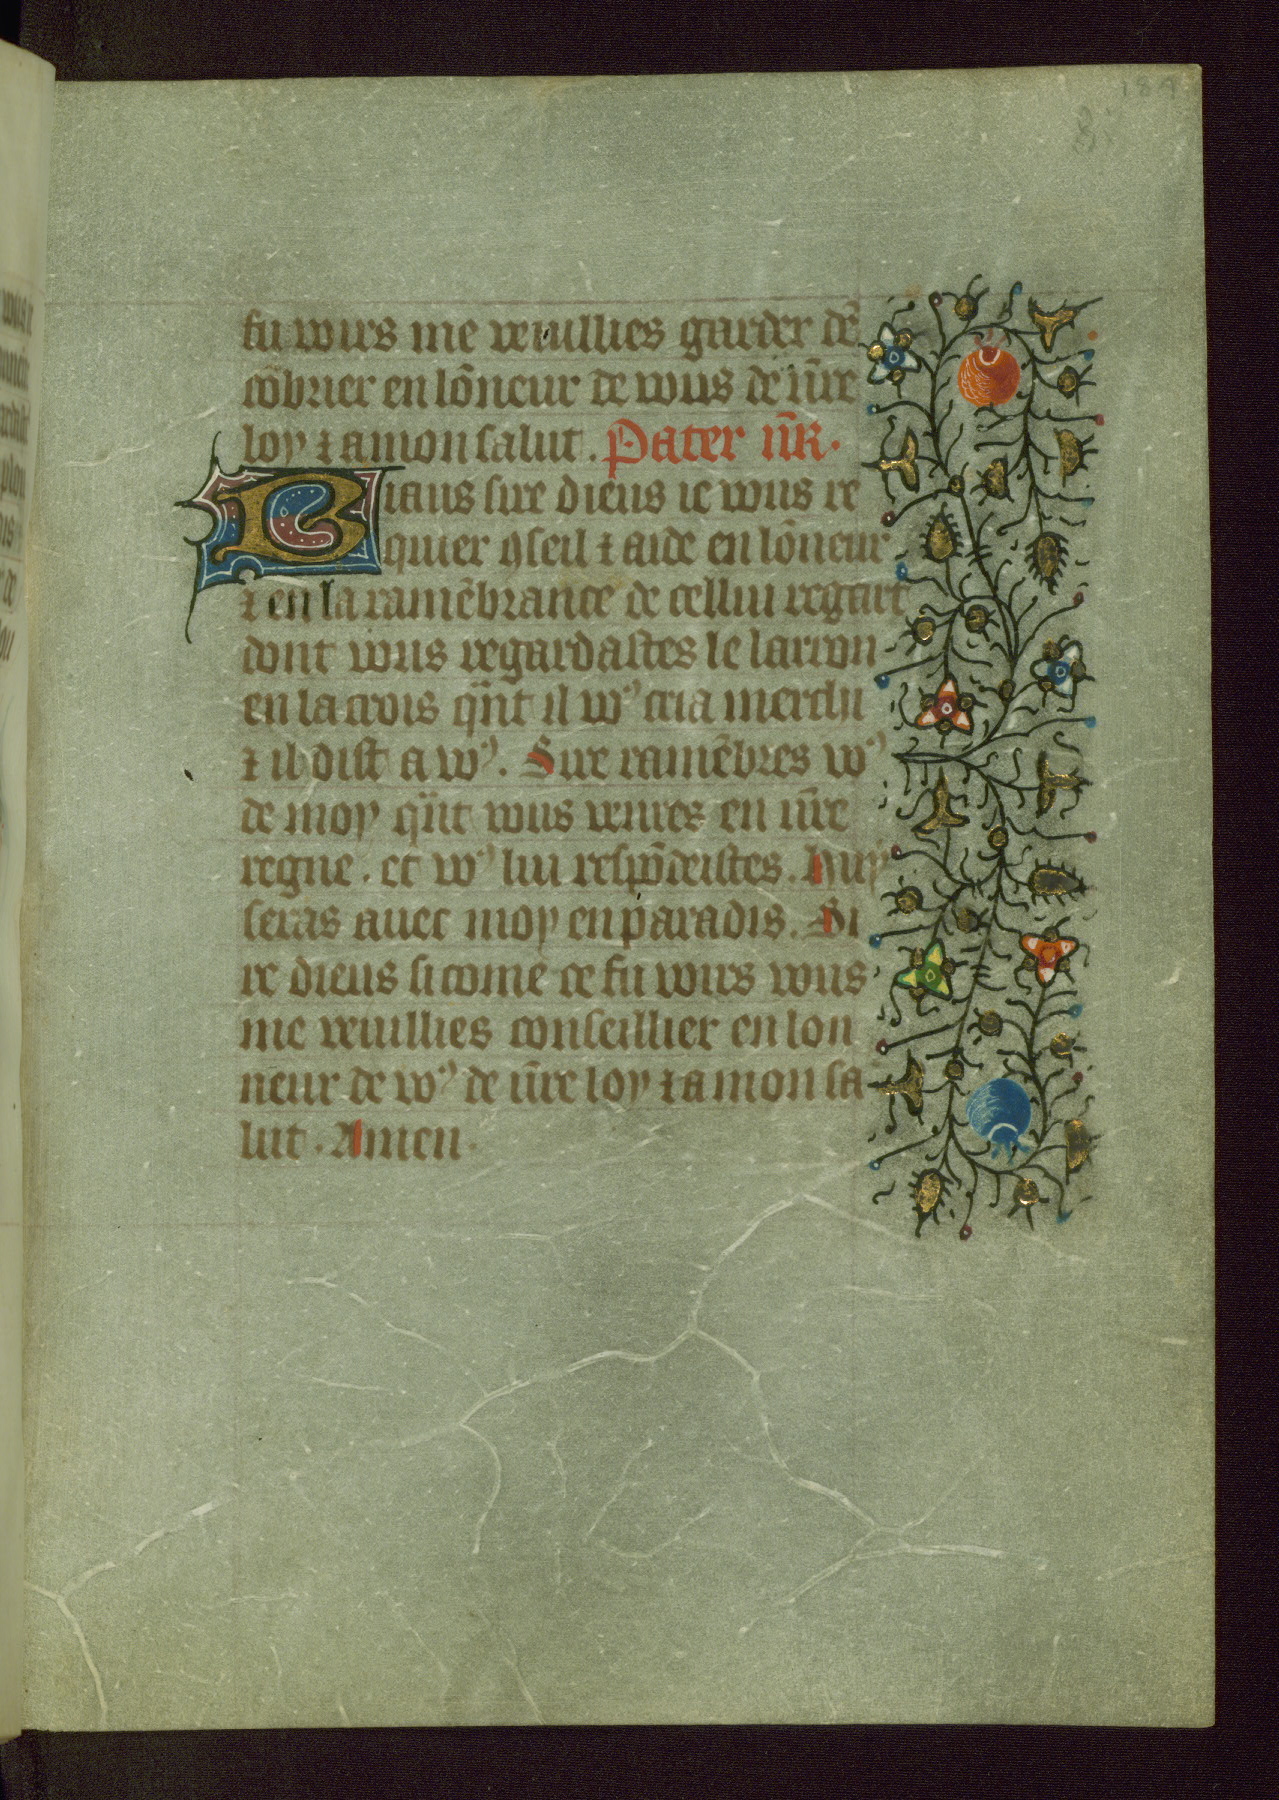 184
fu voirs me veuillies garder dē
cōbrier en lōneur de vous de vr̄e
loy ⁊ a mon salut. Pater nr̄.
Biaus sire dieus ie vous re
quier ꝯseil ⁊ aide en lōneur
⁊ en la ramēbrance de cellui regart
dont vous regardastes le larron
en la crois qn̄t il voꝰ cria merchi
⁊ il dist a voꝰ. Sire ramēbres voꝰ
de moy qn̄t vous venres en vr̄e
regne. et voꝰ lui respōdeistes. Huy
seras auec moy en paradis. Si
re dieus si come ce fu voirs vous
me veuillies conseillier en lon
neur de voꝰ de vr̄e loy ⁊ a mon sa
lut. Amen.